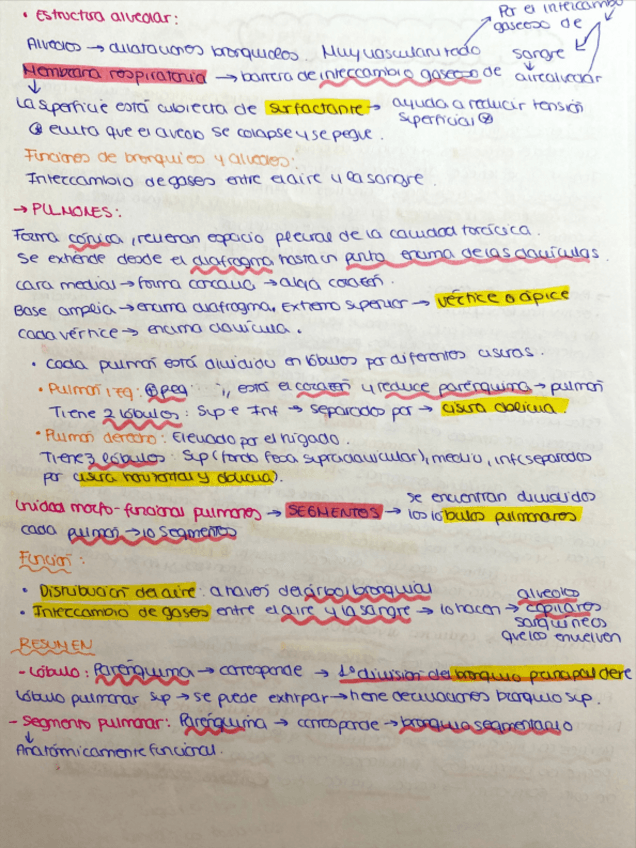 • Estructura alveolar:
Por el intercambio
gaseoso de
Alveolos → dilataciones bronquiolos. Muy vascularizado
sangre
Membrana respiratoria → barrera de intercambio gaseoso de airealveolar
La superficie está cubierta de surfactante → ayuda a reducir tensión
superficial
evita que el alveolo se colapse y se pegue.
Funciones de bronquios y alveolos:
Intercambio de gases entre el aire y la sangre.
→ PULMONES:
Forma cónica, rellenan espacio pleural de la cavidad torácica.
Se extiende desde el diafragma hasta un punto encima de las clavículas.
cara medial → forma cóncava → aloja corazón.
Base amplia → encima diafragma. Extremo superior → vértice o ápice
cada vértice → encima clavícula.
• cada pulmón está dividido en lóbulos por diferentes cisuras.
• Pulmón izq: peq está el corazón y reduce parénquima → pulmón
Tiene 2 lóbulos: Sup e Inf → separados por → cisura oblicua.
• Pulmón derecho: Elevado por el hígado.
Tiene 3 lóbulos: Sup (fondo fosa supraclavicular), medio, inf (separados
por cisura horizontal y oblicua).
Unidad morfo-funcional pulmones → SEGMENTOS → se encuentran divididos
los lóbulos pulmonares
cada pulmón → 10 segmentos
Función:
• Distribución del aire: a través del árbol bronquial
• Intercambio de gases entre el aire y la sangre → lo hacen → alveolos
capilares
sanguíneos
que los envuelven
RESUMEN
- Lóbulo: Parénquima → corresponde → 1º división del bronquio principal dere
Lóbulo pulmonar sup → se puede extirpar → tiene derivaciones bronquio sup.
- Segmento pulmonar: Parénquima → corresponde → bronquio segmentario
↓
Anatómicamente funcional.